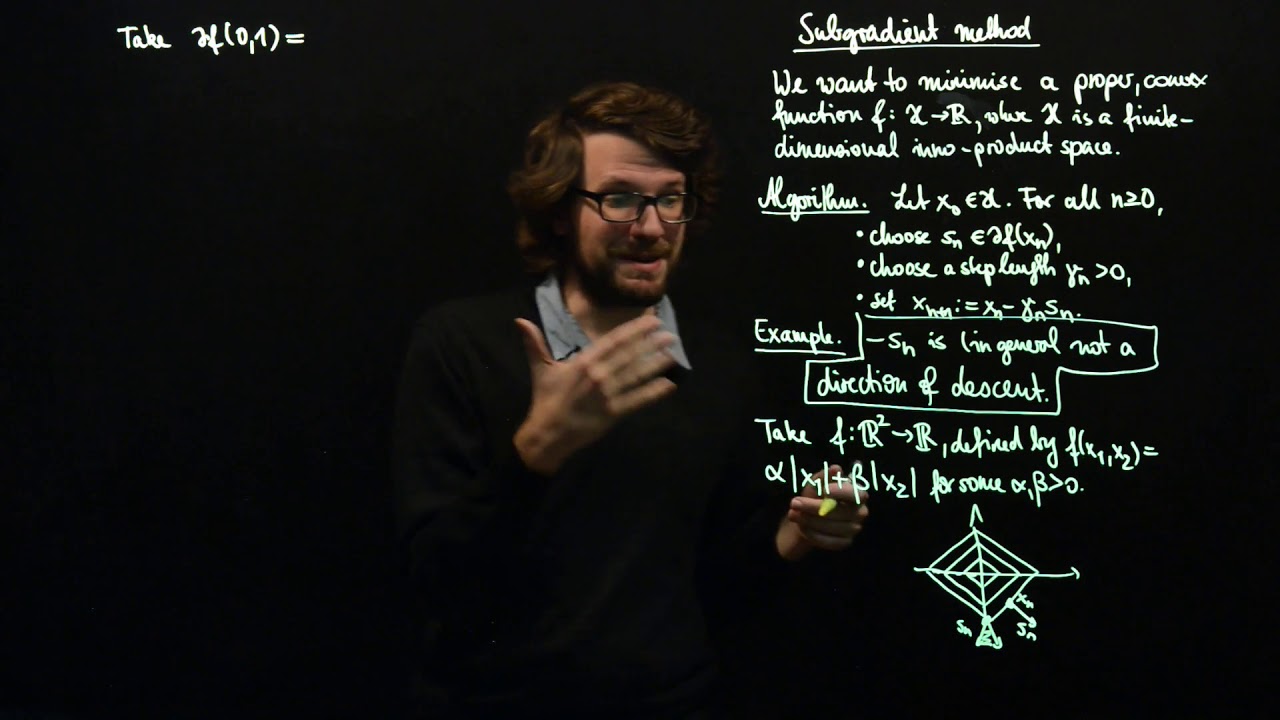 Take ∂f(0,1) =
Subgradient method
We want to minimise a proper, convex
function f: X → ℝ, where X is a finite-
dimensional inner-product space.
Algorithm. Let x₀ ∈ X. For all n ≥ 0,
• choose sₙ ∈ ∂f(xₙ),
• choose a step length γₙ > 0,
• set xₙ₊₁ := xₙ - γₙsₙ.
Example. -sₙ is (in general not a
direction of descent.
Take f: ℝ² → ℝ, defined by f(x₁,x₂) =
α|x₁| + β|x₂| for some α, β > 0.
xₙ
sₙ
sₙ